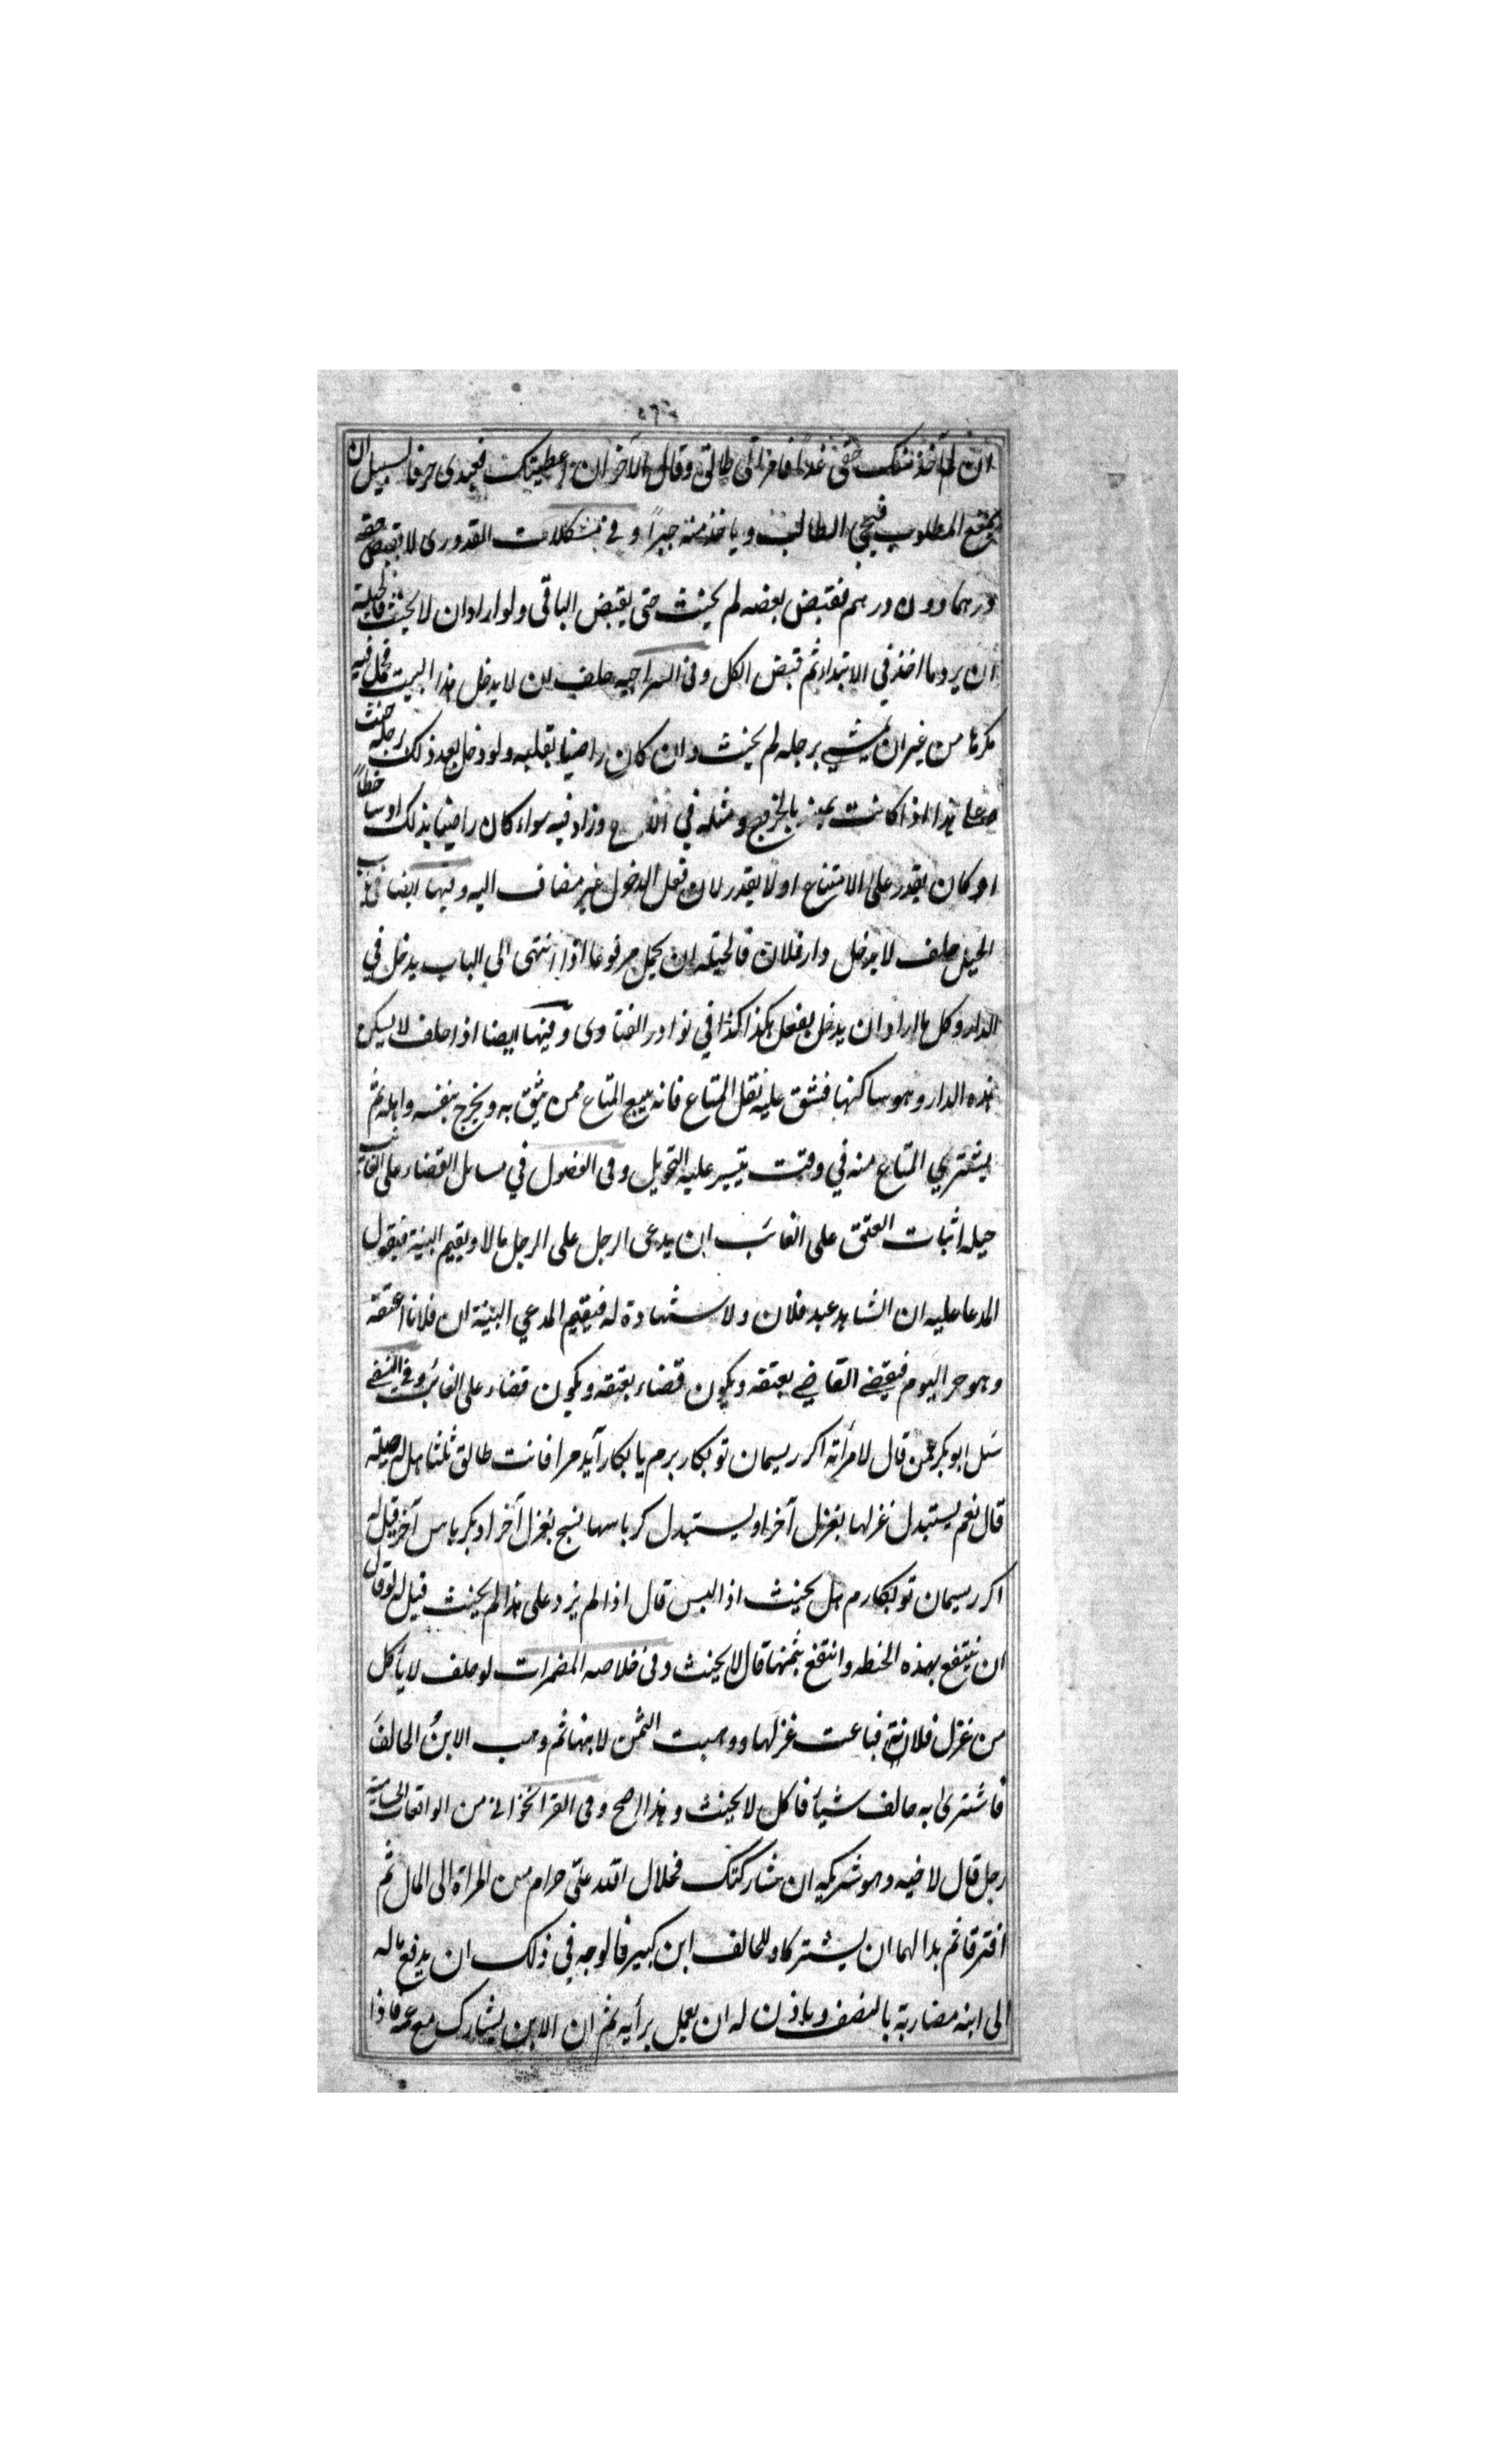 ان لم آخذ منك حقى غدا فامرأتى طالق وقال الآخر ان اعطيتك فعبدى حر فالسبيل ان
يمتنع المطلوب فيجئ الطالب وياخذ منه جبراً وفى مشكلات القدورى لا يقبض حقه
درهما دون درهم فقبض بعضه لم يحنث حتى يقبض الباقى ولو اراد ان لا يحنث فالحيلة
ان يرد ما اخذ في الابتداء ثم قبض الكل وفى السراجيه حلف ان لا يدخل هذا البيت فحمل فيه
مكرها من غير ان يمشي برجله لم يحنث وان كان راضيا بقلبه ولو دخل بعد ذلك برجله حنث
وعلى هذا اذا كانت يمينه بالخروج ومثله في وزاد فيه سواء كان راضيا بذلك او ساخطاً
او كان يقدر على الامتناع او لا يقدر لان فعل الدخول غير مضاف اليه وفيها ايضا فى باب
الحيل حلف لا يدخل دار فلان فالحيلة ان يحمل مرفوعا اذا انتهى الى الباب يدخل في
الدار وكل ما اراد ان يدخل يفعل هكذا كذا في نوادر الفتاوى وفيها ايضا اذا حلف لا يسكن
هذه الدار وهو ساكنها فشق عليه نقل المتاع فانه يبيع المتاع ممن يثق به ويخرج بنفسه واهله ثم
يشتري المتاع منه في وقت يتيسر عليه التحويل وفى الفصول في مسائل القضاء على الغائب
حيلة اثبات العتق على الغائب ان يدعى الرجل على الرجل مالا ويقيم البينة فيقول
المدعا عليه ان الشاهد عبد فلان ولا شهادة له فيقيم المدعي البينة ان فلانا اعتقه
وهو حر اليوم فيقضے القاضے بعتقه ويكون قضاء بعتقه ويكون قضاء على الغائب وفى النسفے
سئل ابو بكر عمن قال لامرأته اكر ريسمان تو بكار برم يا بكار آيد مرا فانت طالق ثلثا هل له حيلة
قال نعم يستبدل غزلها بغزل آخر او يستبدل كرباسها نسج بغزل آخر او بكرباس آخر قيل له
اكر ريسمان تو بكار برم هل يحنث اذا لبس قال اذا لم يزد على هذا لم يحنث قيل له لو قال
ان ينتفع بهذه الحنطه وانتفع بثمنها قال لا يحنث وفى خلاصه المضمرات لو حلف لا يأكل
من غزل فلانة فباعت غزلها ووهبت الثمن لابنها ثم وهب الابنُ الحالفَ
فاشترى به حالف شيأ فاكل لا يحنث وهذا اصح وفى القراخوانى من الواقعات الحسامية
رجل قال لاخيه وهو شريكه ان شاركتك فحلال الله علىّ حرام من المراة الى المال ثم
افترقا ثم بدا لهما ان يشتركا وللحالف ابن كبير فالوجه في ذلك ان يدفع ماله
الى ابنه مضاربة بالنصف وياذن له ان يعمل برأيه ثم ان الابن يشارك مع عمه فاذا